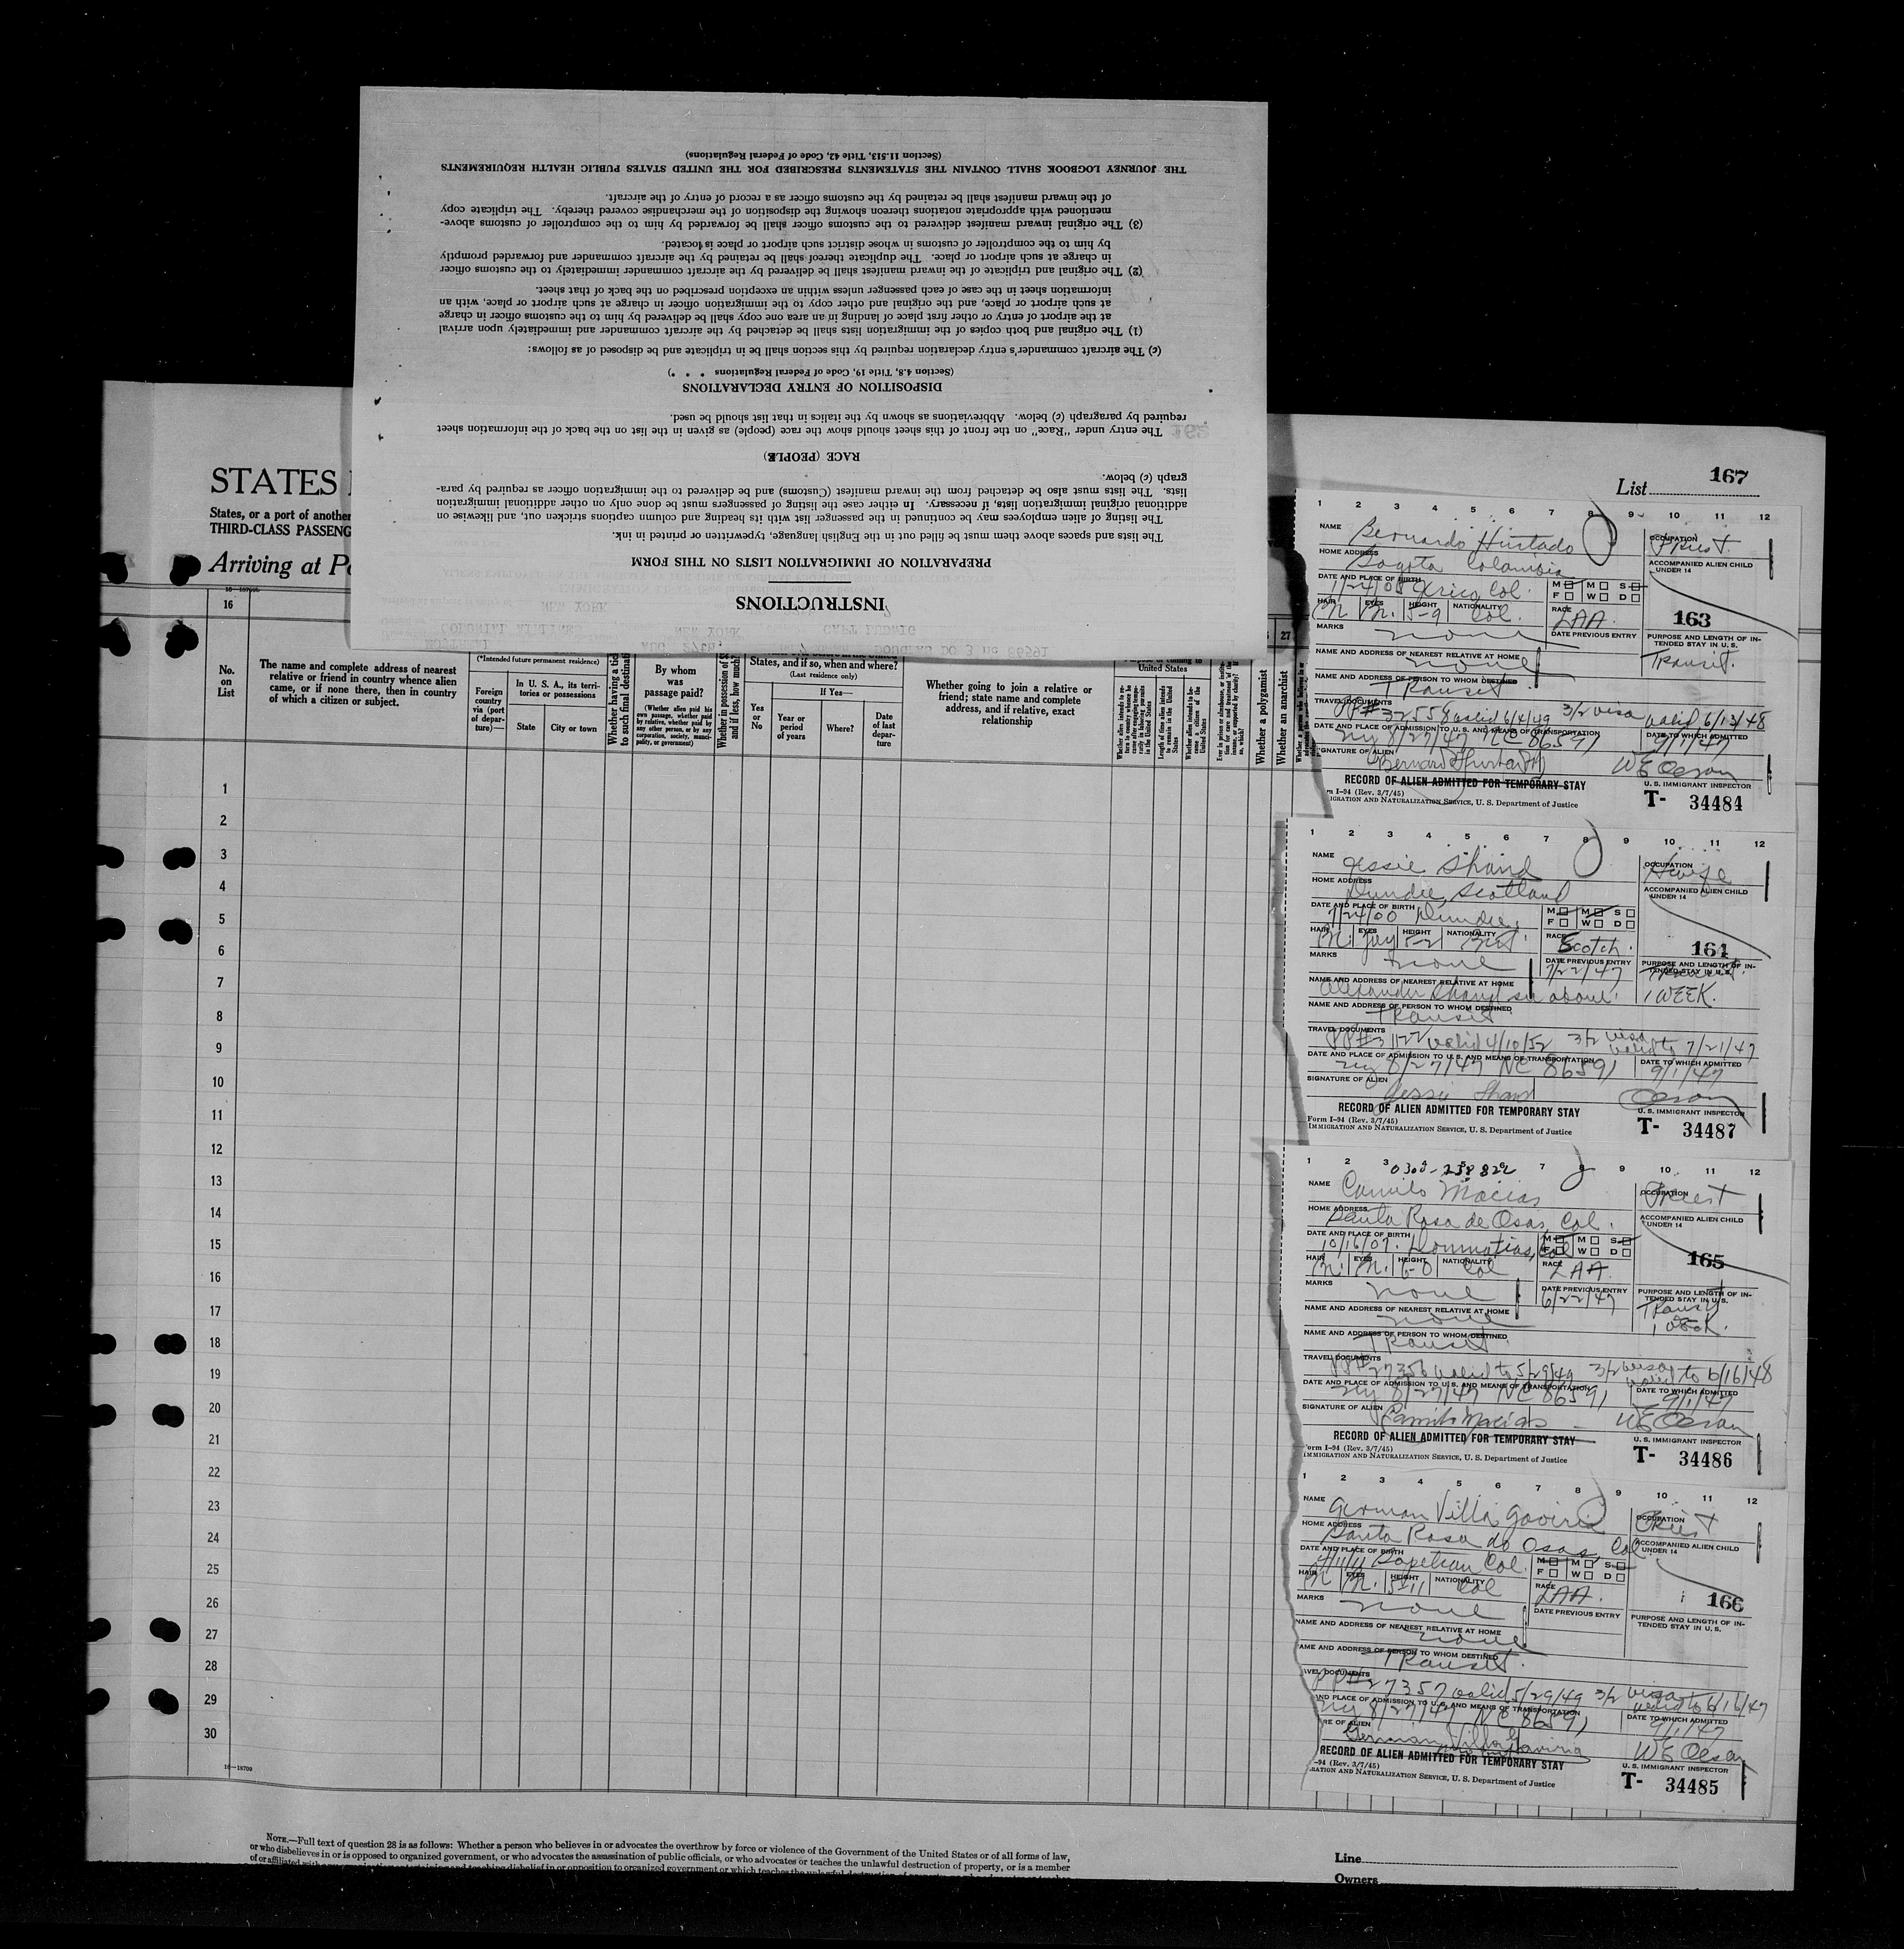 INSTRUCTIONS
PREPARATION OF IMMIGRATION LISTS ON THIS FORM
The lists and spaces above them must be filled out in the English language, typewritten or printed in ink.
The listing of alien employees may be continued in the passenger list with its heading and column captions stricken out, and likewise on
additional original immigration lists, if necessary. In either case the listing of passengers must be done only on other additional immigration
lists. The lists must also be detached from the inward manifest (Customs) and be delivered to the immigration officer as required by para-
graph (c) below.
RACE (PEOPLE)
The entry under "Race" on the front of this sheet should show the race (people) as given in the list on the back of the information sheet
required by paragraph (c) below. Abbreviations as shown by the italics in that list should be used.
DISPOSITION OF ENTRY DECLARATIONS
(Section 4.8, Title 19, Code of Federal Regulations * * *)
(c) The aircraft commander's entry declaration required by this section shall be in triplicate and be disposed of as follows:
(1) The original and both copies of the immigration lists shall be detached by the aircraft commander and immediately upon arrival
at the airport of entry or other first place of landing in an area one copy shall be delivered by him to the customs officer in charge
at such airport or place, and the original and other copy to the immigration officer in charge at such airport or place, with an
information sheet in the case of each passenger unless within an exception prescribed on the back of that sheet.
(2) The original and triplicate of the inward manifest shall be delivered by the aircraft commander immediately to the customs officer
in charge at such airport or place. The duplicate thereof shall be retained by the aircraft commander and forwarded promptly
by him to the comptroller of customs in whose district such airport or place is located.
(3) The original inward manifest delivered to the customs officer shall be forwarded by him to the comptroller of customs above-
mentioned with appropriate notations thereon showing the disposition of the merchandise covered thereby. The triplicate copy
of the inward manifest shall be retained by the customs officer as a record of entry of the aircraft.
THE JOURNEY LOGBOOK SHALL CONTAIN THE STATEMENTS PRESCRIBED FOR THE UNITED STATES PUBLIC HEALTH REQUIREMENTS
(Section 11.513, Title 42, Code of Federal Regulations)
STATES
States, or a port of another
THIRD-CLASS PASSENG
Arriving at Po
List 167
16
27
No. on List
The name and complete address of nearest
relative or friend in country whence alien
came, or if none there, then in country
of which a citizen or subject.
(*Intended future permanent residence)
Foreign country via (port of departure)—
In U. S. A., its territories or possessions
State
City or town
By whom was passage paid?
(Whether alien paid his own passage, whether paid by relative, whether paid by any other person, or by any corporation, society, municipality, or government)
States, and if so, when and where?
(Last residence only)
Yes or No
If Yes—
Year or period of years
Where?
Date of last departure
Whether going to join a relative or
friend; state name and complete
address, and if relative, exact
relationship
United States
Whether a polygamist
Whether an anarchist
1
2
3
4
5
6
7
8
9
10
11
12
13
14
15
16
17
18
19
20
21
22
23
24
25
26
27
28
29
30
16—18709
1 2 3 4 5 6 7 8 9 10 11 12
NAME Bernardo Hurtado
OCCUPATION Priest.
HOME ADDRESS Bogota Colombia
ACCOMPANIED ALIEN CHILD UNDER 14
DATE AND PLACE OF BIRTH 1/24/08 Col.
M F M W S D
HAIR EYES HEIGHT 5-9 NATIONALITY Col.
RACE LAA.
163
MARKS none
DATE PREVIOUS ENTRY
PURPOSE AND LENGTH OF INTENDED STAY IN U.S. Transit.
NAME AND ADDRESS OF NEAREST RELATIVE AT HOME none
NAME AND ADDRESS OF PERSON TO WHOM DESTINED Transit.
TRAVEL DOCUMENTS PP# 32558 valid 6/4/49 3/2 visa valid 6/13/48
DATE AND PLACE OF ADMISSION TO U.S. AND MEANS OF TRANSPORTATION NY 8/27/47 NC 86591
DATE TO WHICH ADMITTED 9/1/47
SIGNATURE OF ALIEN
WE Olson
RECORD OF ALIEN ADMITTED FOR TEMPORARY STAY
U. S. IMMIGRANT INSPECTOR
m I-94 (Rev. 3/7/45)
IGRATION AND NATURALIZATION SERVICE, U. S. Department of Justice
T- 34484
1 2 3 4 5 6 7 8 9 10 11 12
NAME Jessie Shand
OCCUPATION Hwife
HOME ADDRESS Dundee, Scotland
ACCOMPANIED ALIEN CHILD UNDER 14
DATE AND PLACE OF BIRTH 7/24/00 Dundee,
M F M W S D
HAIR EYES HEIGHT 5-2 NATIONALITY Brit.
RACE Scotch.
164
MARKS none
DATE PREVIOUS ENTRY 7/22/47
PURPOSE AND LENGTH OF INTENDED STAY IN U.S. Transit. 1 WEEK.
NAME AND ADDRESS OF NEAREST RELATIVE AT HOME Alexander Shand see above.
NAME AND ADDRESS OF PERSON TO WHOM DESTINED Transit.
TRAVEL DOCUMENTS valid 4/10/52 3/2 visa valid to 7/21/47
DATE AND PLACE OF ADMISSION TO U.S. AND MEANS OF TRANSPORTATION NY 8/27/47 NC 86591
DATE TO WHICH ADMITTED 9/1/47
SIGNATURE OF ALIEN Jessie Shand
Olson
RECORD OF ALIEN ADMITTED FOR TEMPORARY STAY
U. S. IMMIGRANT INSPECTOR
Form I-94 (Rev. 3/7/45)
IMMIGRATION AND NATURALIZATION SERVICE, U. S. Department of Justice
T- 34487
0300-238822
1 2 3 4 5 6 7 8 9 10 11 12
NAME Camilo Macias
OCCUPATION Priest
HOME ADDRESS Santa Rosa de Osos, Col.
ACCOMPANIED ALIEN CHILD UNDER 14
DATE AND PLACE OF BIRTH 10/16/07. Donmatias, Col
M F M W S D
HAIR EYES HEIGHT 6-0 NATIONALITY Col
RACE LAA.
165
MARKS none
DATE PREVIOUS ENTRY 6/22/47
PURPOSE AND LENGTH OF INTENDED STAY IN U.S. Transit 1 week.
NAME AND ADDRESS OF NEAREST RELATIVE AT HOME none
NAME AND ADDRESS OF PERSON TO WHOM DESTINED Transit.
TRAVEL DOCUMENTS PP# 27356 valid to 5/29/49 3/2 visa valid to 6/16/48
DATE AND PLACE OF ADMISSION TO U.S. AND MEANS OF TRANSPORTATION NY 8/27/47 NC 86591
DATE TO WHICH ADMITTED 9/1/47
SIGNATURE OF ALIEN Camilo Macias
WE Olson
RECORD OF ALIEN ADMITTED FOR TEMPORARY STAY
U. S. IMMIGRANT INSPECTOR
orm I-94 (Rev. 3/7/45)
IMMIGRATION AND NATURALIZATION SERVICE, U. S. Department of Justice
T- 34486
1 2 3 4 5 6 7 8 9 10 11 12
NAME German Villa Gaviria
OCCUPATION Priest
HOME ADDRESS Santa Rosa do Osos, Col.
ACCOMPANIED ALIEN CHILD UNDER 14
DATE AND PLACE OF BIRTH Col.
M F M W S D
HAIR EYES HEIGHT 5-11 NATIONALITY Col
RACE LAA.
166
MARKS none
DATE PREVIOUS ENTRY
PURPOSE AND LENGTH OF INTENDED STAY IN U. S.
NAME AND ADDRESS OF NEAREST RELATIVE AT HOME none
AME AND ADDRESS OF PERSON TO WHOM DESTINED Transit.
AVEL DOCUMENTS PP# 27357 valid 5/29/49 3/2 visa valid to 6/16/47
AND PLACE OF ADMISSION TO U.S. AND MEANS OF TRANSPORTATION NY 8/27/47 NC 86591
DATE TO WHICH ADMITTED 9/1/47
RE OF ALIEN German Villa Gaviria
WE Olson
RECORD OF ALIEN ADMITTED FOR TEMPORARY STAY
U. S. IMMIGRANT INSPECTOR
-94 (Rev. 3/7/45)
RATION AND NATURALIZATION SERVICE, U. S. Department of Justice
T- 34485
NOTE.—Full text of question 28 is as follows: Whether a person who believes in or advocates the overthrow by force or violence of the Government of the United States or of all forms of law,
or who disbelieves in or is opposed to organized government, or who advocates the assassination of public officials, or who advocates or teaches the unlawful destruction of property, or is a member
Line
Owners